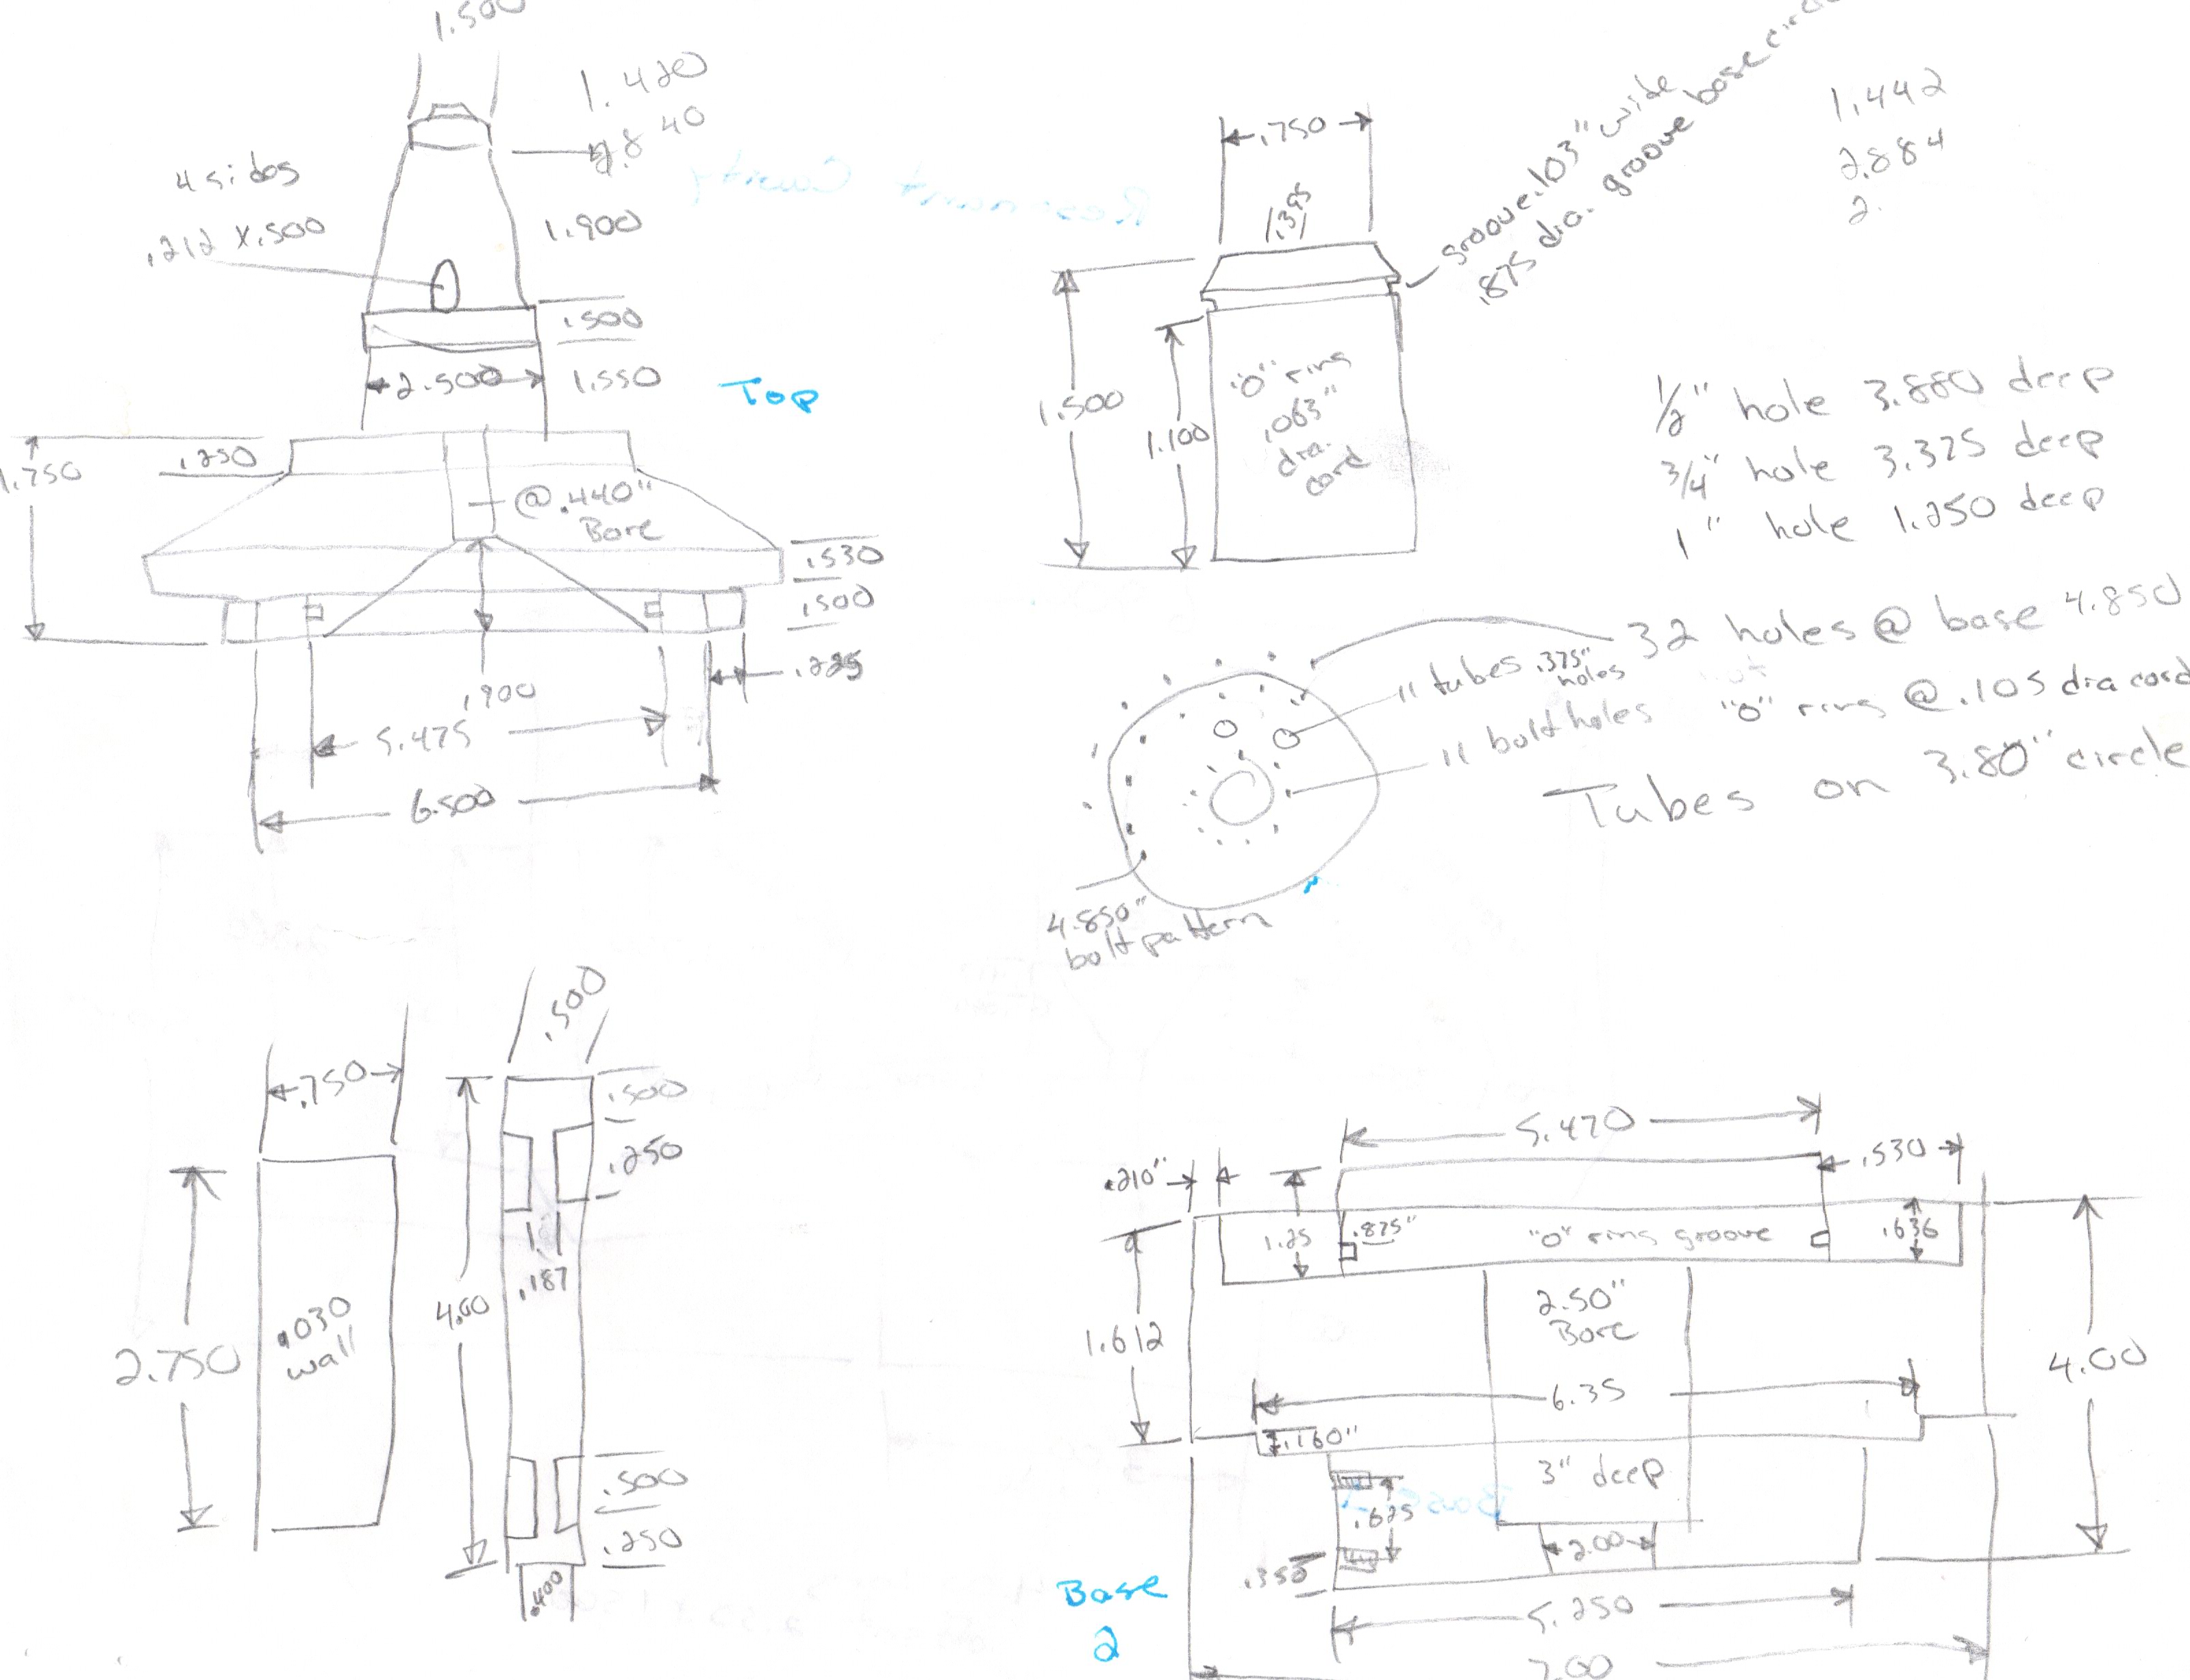 1.500
1.420
.840
4 sides
.212 X .500
1.900
.500
2.500
1.550
Top
1.750
.250
@ .440"
Bore
.530
.500
.225
.900
5.475
6.500
.750
groove .103" wide
.875 dia. groove base
1.442
2.884
2.
1.500
1.100
"O" ring
.063"
dia.
cord
1/2" hole 3.880 deep
3/4" hole 3.375 deep
1" hole 1.250 deep
32 holes @ base 4.850
11 tubes .375"
holes
11 bolt holes
"O" ring @ .105 dia cord
Tubes on 3.80" circle
4.850"
bolt pattern
.750
2.750
.030
wall
.500
.500
.250
.187
4.00
.500
.250
.400
5.470
.530
.210"
1.25
.875"
"O" ring groove
.636
2.50"
Bore
1.612
4.00
6.35
.160"
3" deep
.625
2.00
.350
5.250
7.00
Base
2
Resonant Cavity
Base